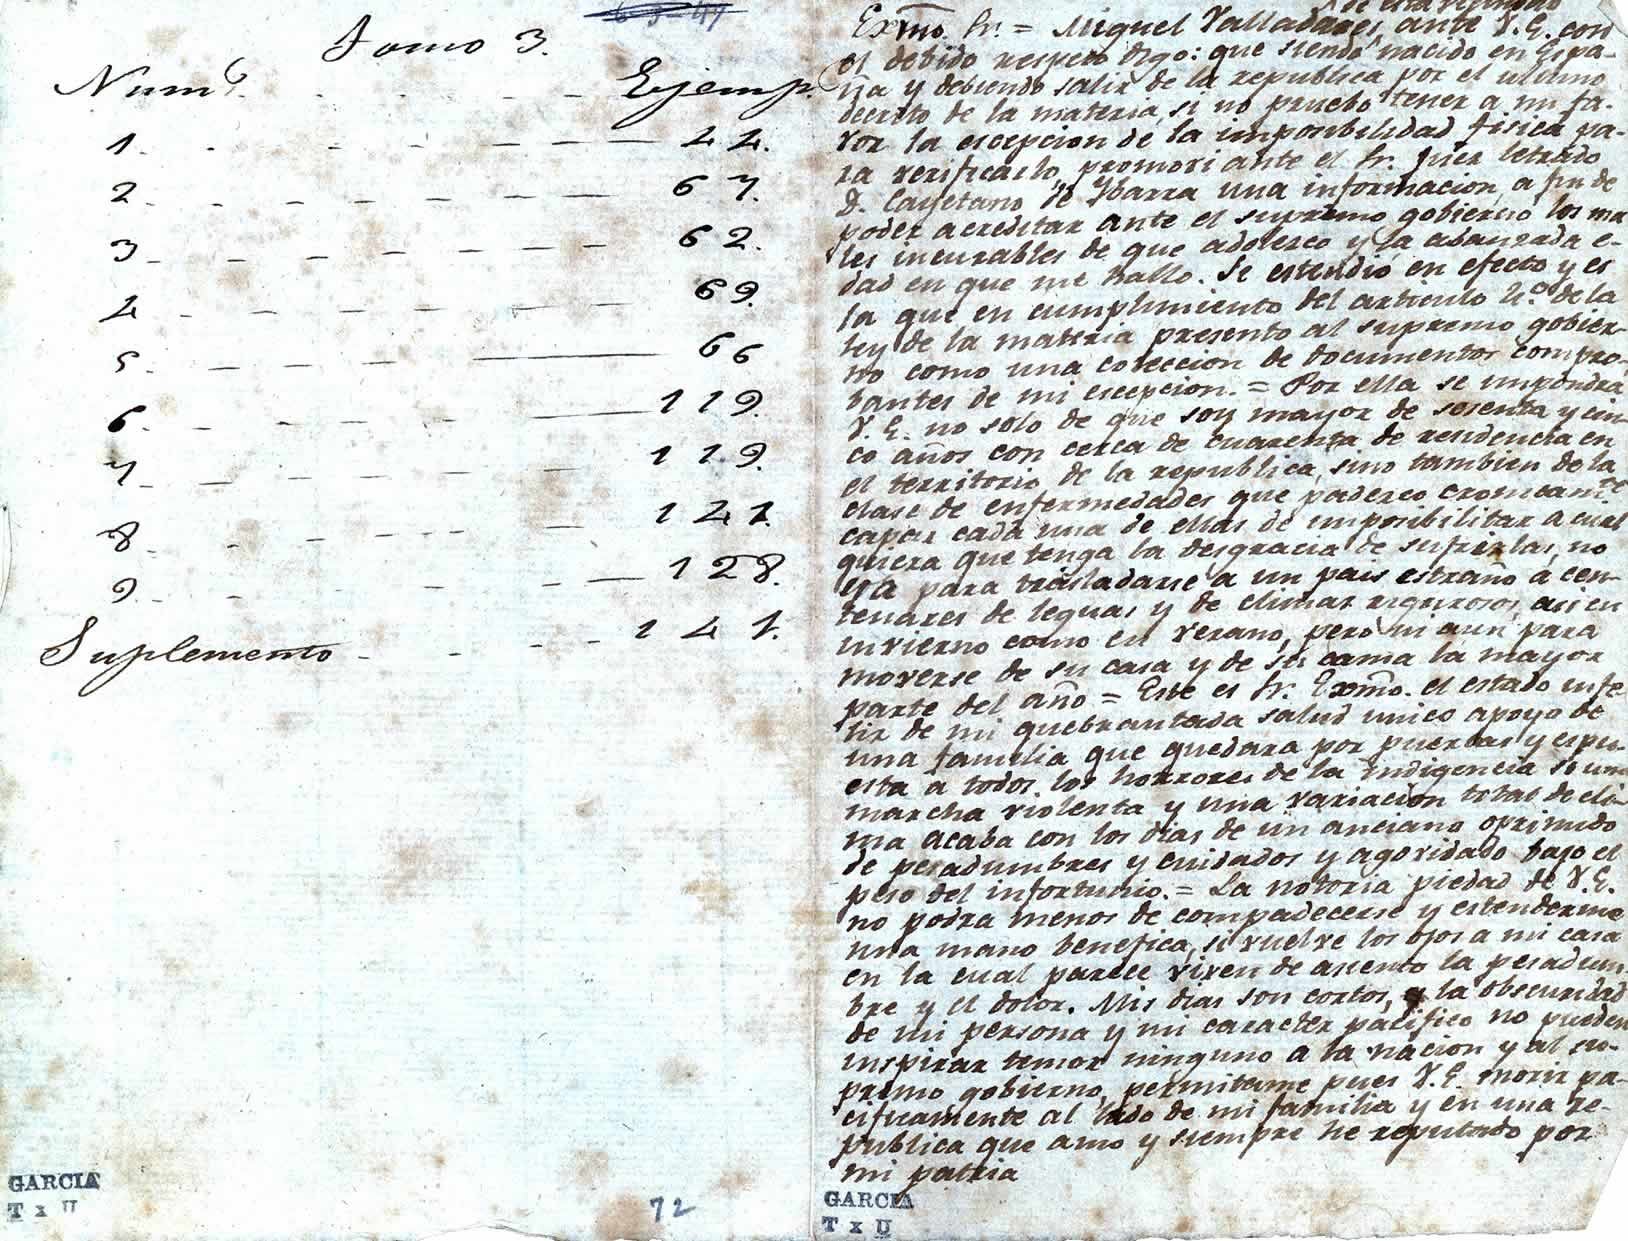 Tomo 3.
Nums. Ejemp.
1. 44.
2. 67.
3. 62.
4. 69.
5. 66
6. 119.
7. 119.
8. 121.
9. 128.
Suplemento 141.
GARCIA
T x U
72
Exmo. Sr. = Miguel Valladares, ante V.E. con
el debido respeto digo: que siendo nacido en Espa-
ña y debiendo salir de la republica por el ultimo
decreto de la materia, si no pruebo tener a mi fa-
vor la escepcion de la imposibilidad fisica pa-
ra verificarlo, promovi ante el Sr. Juez letrado
D. Cayetano de Ybarra una informacion, a fin de
poder acreditar ante el supremo gobierno los ma
les incurables de que adolesco y la abanzada e-
dad en que me hallo. Se estendió en efecto y es
la que en cumplimiento del articulo 4.º de la
ley de la materia presento al supremo gobier-
no como una coleccion de documentos compro-
bantes de mi escepcion. = Por ella se impondrá
V.E. no solo de que soy mayor de sesenta y cin-
co años con cerca de cuarenta de residencia en
el territorio de la republica, sino tambien de la
clase de enfermedades que padesco cronicamte
capaz cada una de ellas de imposibilitar a cual
quiera que tenga la desgracia de sufrirlas, no
ya para trasladarse a un pais estraño a cen-
tenares de leguas y de climas rigurosos, asi en
invierno como en verano, pero ni aun para
moverse de su casa y de su cama la mayor
parte del año = Este es Sr. Exmo. el estado infe
liz de mi quebrantada salud unico apoyo de
una familia que quedara por puertas y espu-
esta a todos los horrores de la indigencia si una
marcha violenta y una variacion total de cli-
ma acaba con los dias de un anciano oprimido
de pesadumbres y cuidados y agoviado bajo el
peso del infortunio. = La notoria piedad de V.E.
no podra menos de compadecerse y estenderme
una mano benefica, si vuelve los ojos a mi casa
en la cual parece viven de asiento la pesadum-
bre y el dolor. Mis dias son cortos, y la obscuridad
de mi persona y mi caracter pacifico no pueden
inspirar temor ninguno a la nacion y al su-
premo gobierno, permitame pues V.E. morir pa-
cificamente al lado de mi familia y en una re-
publica que amo y siempre he reputado por
mi patria
GARCIA
T x U